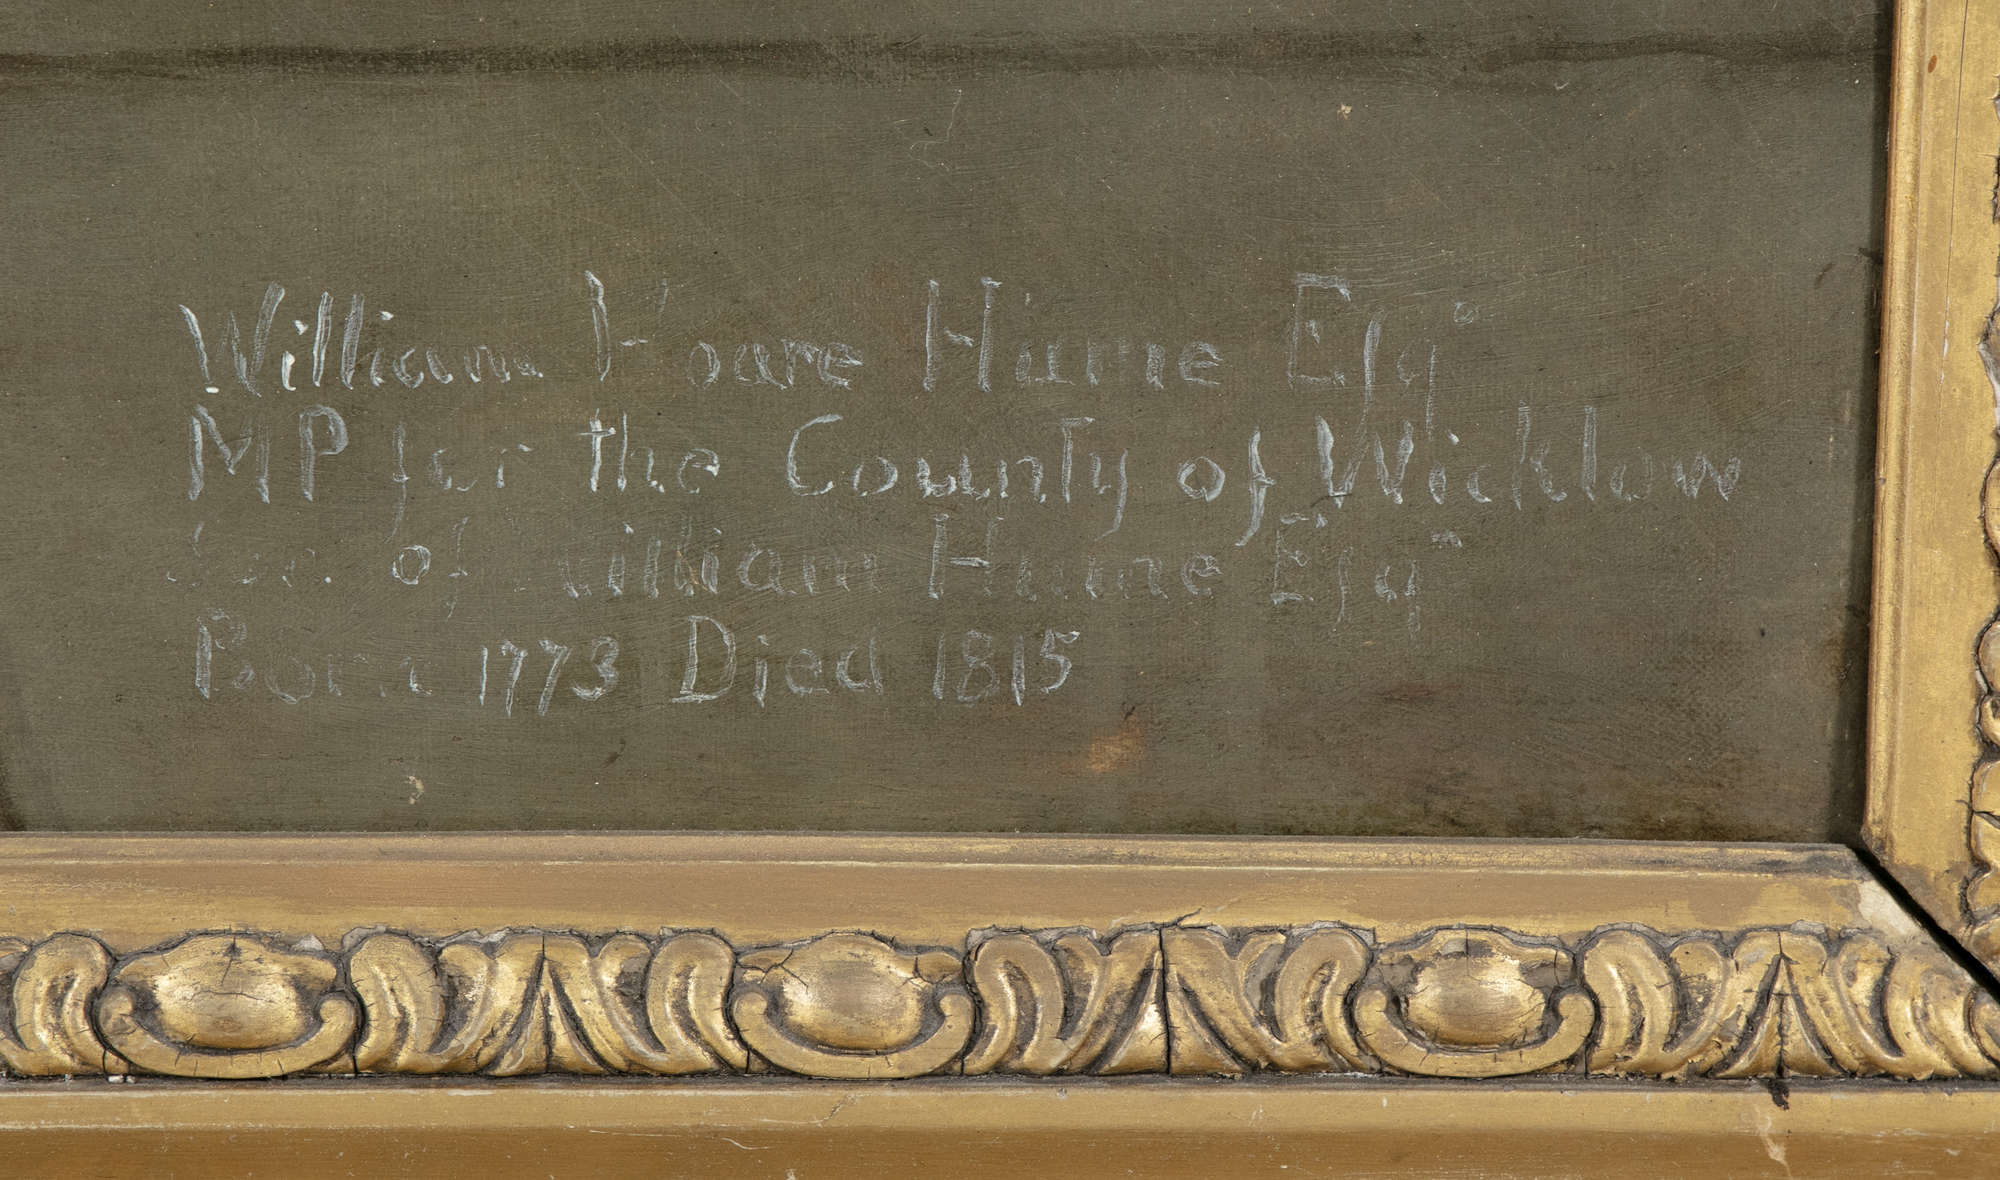 William Hoare Hume Esqr
MP for the County of Wicklow
Son of William Hume Esqr
Born 1773 Died 1815